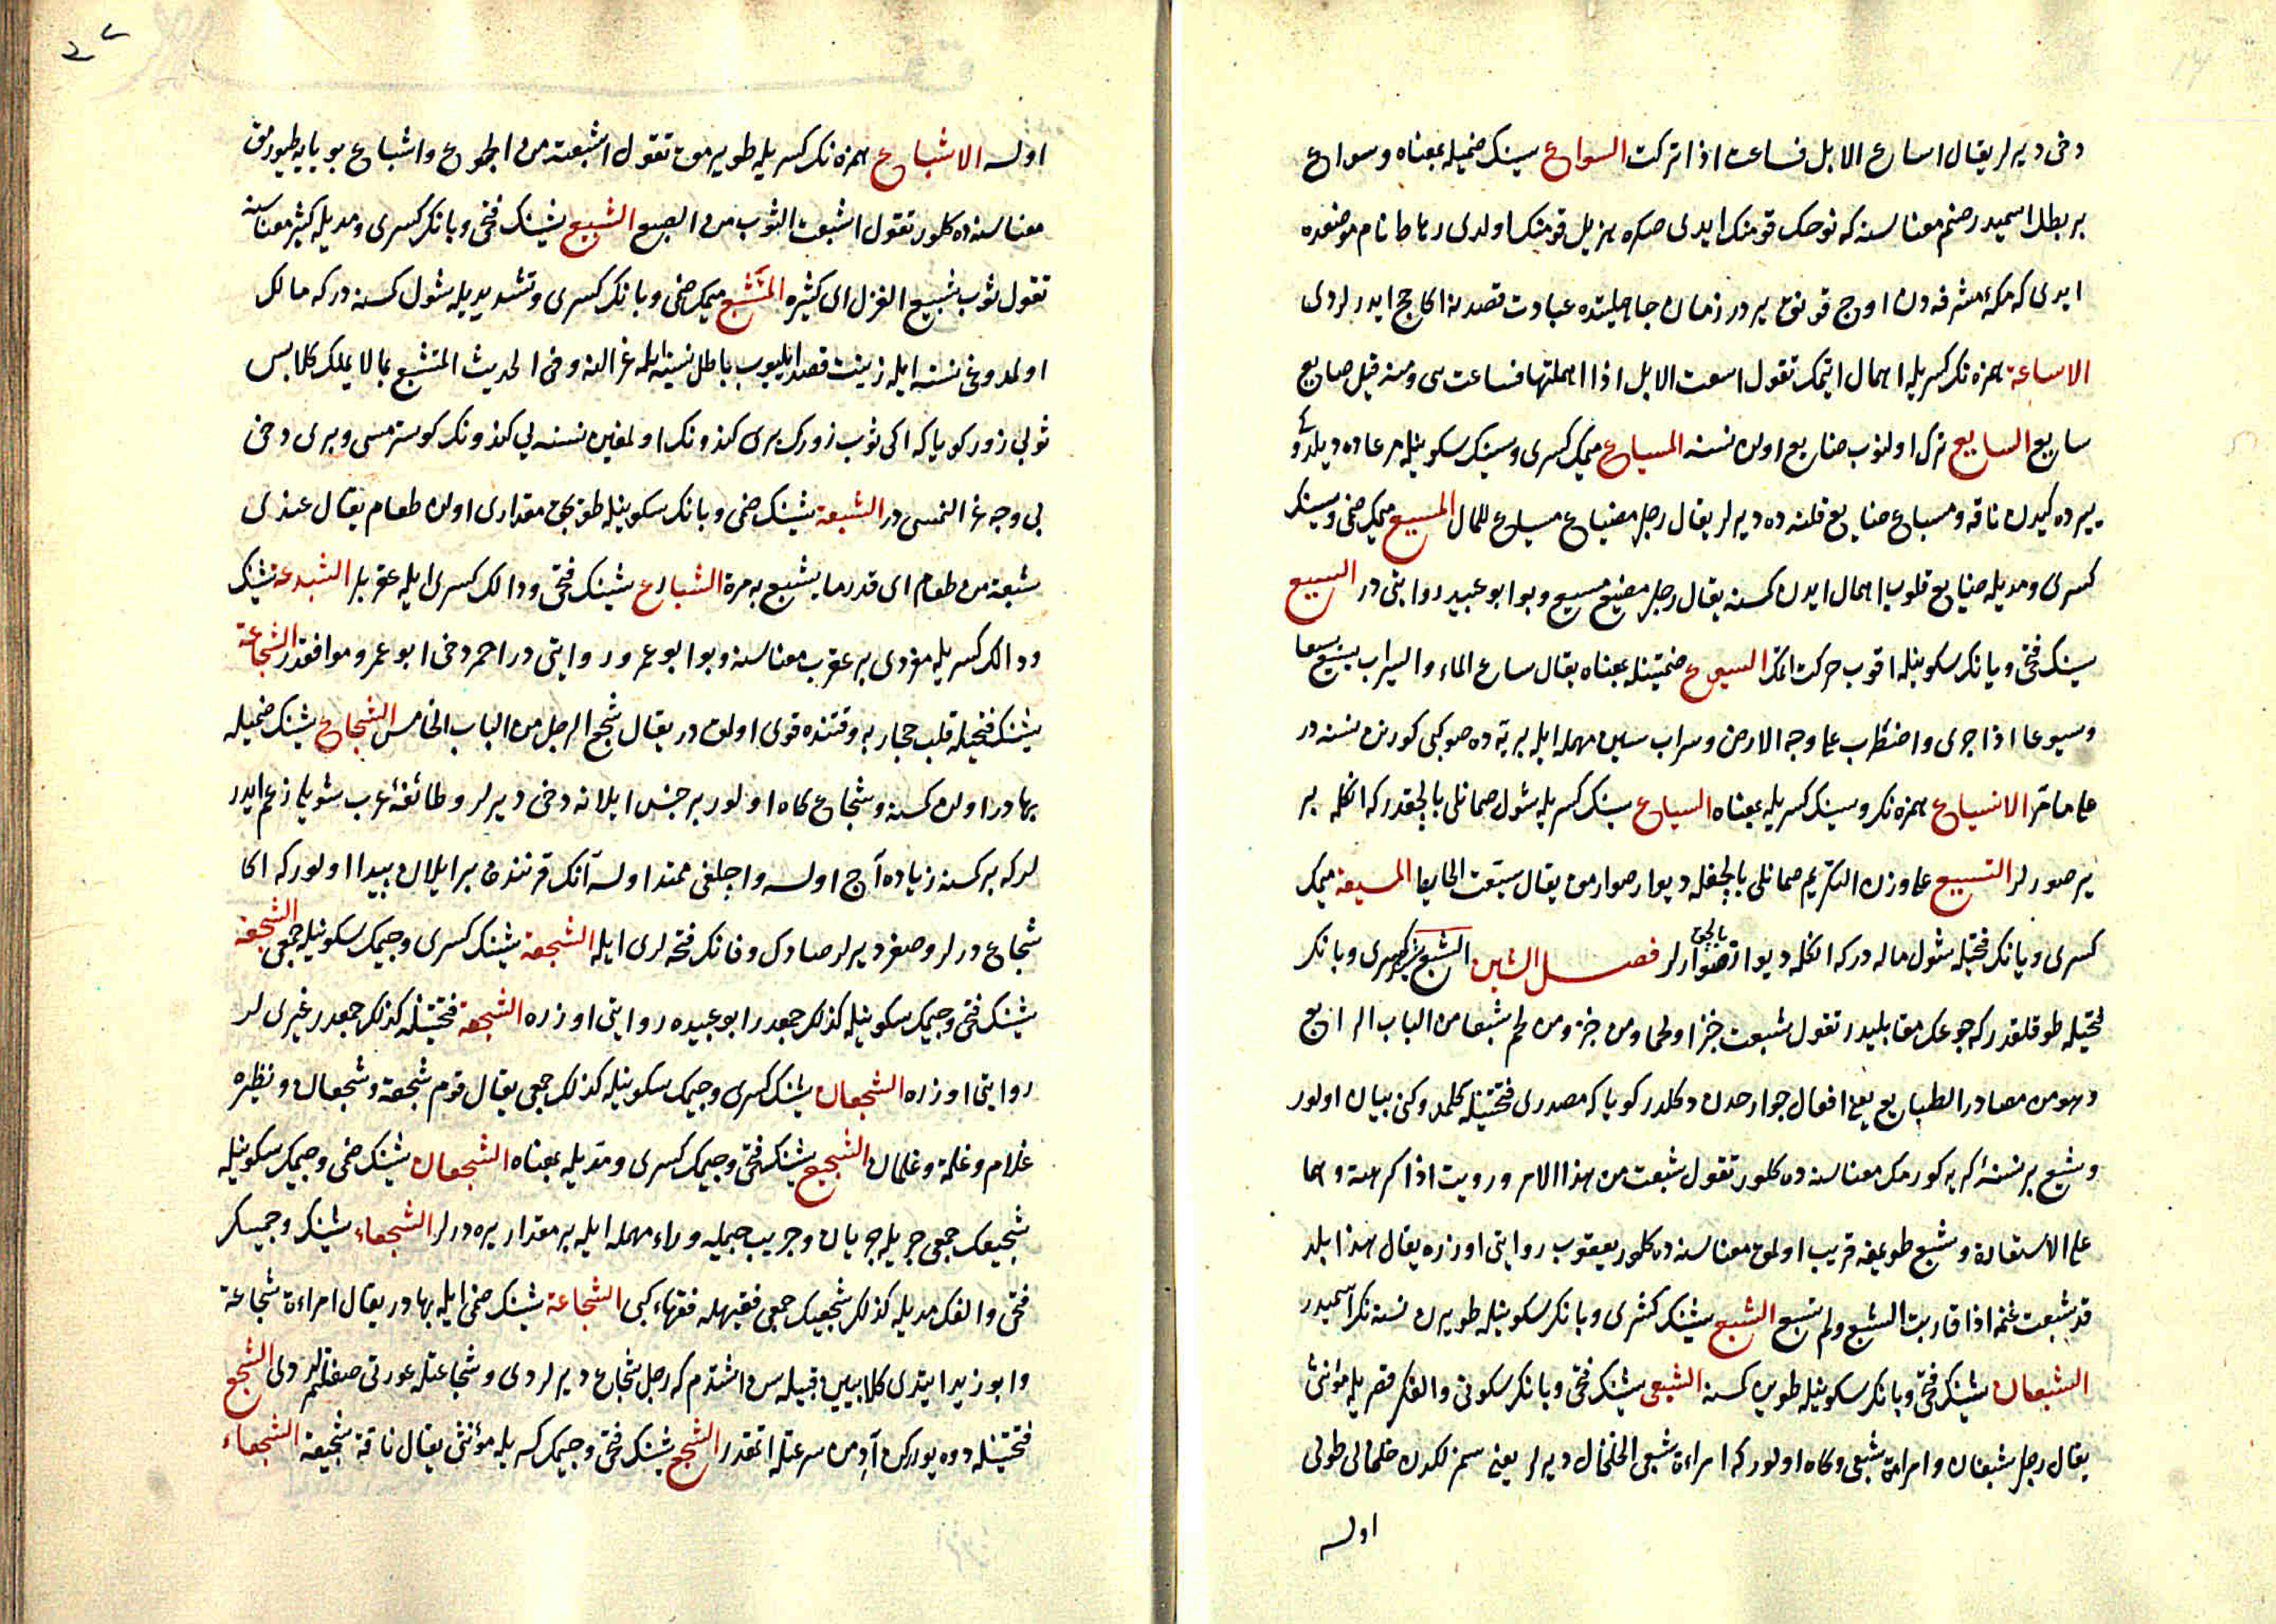 دخی دیرلر یقال اساع الابل فساعت اذا ترکت السواع سینک ضمیله بمعناه وسواع
بر بطل اسمیدر صنم معناسنه که نوحک قومنک ایدی صکره هزیل قومنک اولدی رهاط نام موضعده
ایدی که مکهٔ مشرفه دن اوج قوناق یردر زمان جاهلیتده عبادت قصدنه اکا حج ایدرلردی
الاساعة همزه نک کسریله اهمال ایتمک تقول اسعت الابل اذا اهملتها فساعت هی ومنه قیل ضایع
سایع السایع ترک اولنوب ضایع اولان نسنه المسیاع میمک کسری وسینک سکونیله مرعاده دیلدوکی
یره کیدن ناقه ومسیاع ضایع قلنه ده دیرلر یقال رجل مضیاع مسیاع للمال المسیع میمک ضمی وسینک
کسری ومدیله ضایع قلوب اهمال ایدن کمسنه یقال رجل مضیع مسیع وبو ابو عبید روایتی در السیع
سینک فتحی ویانک سکونیله اقوب حرکت اتمک السیوع ضمتینله بمعناه یقال ساع الماء والسراب یسیع سیعا
وسیوعا اذا جری واضطرب علی وجه الارض وسراب سین مهمله ایله بریه ده صو کبی کورینن نسنه در
علی ما مر الانسیاع همزه نک وسینک کسریله بمعناه السیاع سینک کسریله شول صمانلی بالچقدر که انکله یر
یر صورلر التسییع علی وزن التکریم صمانلی بالچغله دیوار صوامق یقال سیعت الحایط المسیعة میمک
کسری ویانک فتحیله شول ماله در که انکله دیواره بالچق صوارلر فصل الشین الشبع شینک کسری وبانک
فتحیله طوقلقدر که جوعک مقابلیدر تقول شبعت خبزا ولحما ومن خبز ومن لحم شبعا من الباب الرابع
وهو من مصادر الطبایع یعنی افعال جوارحدن دکلدر کویا که مصدری فتحتینله کلمدوکن بیان اولور
وشبع بر نسنهٔ اکره کورمک معناسنه ده کلور تقول شبعت من هذا الامر ورویت اذا کرهته وهما
علی الاستعارة وشبع طویغه قریب اولمق معناسنه ده کلور یعقوب روایتی اوزره یقال هذا بلد
قد شبعت غنمه اذا قاربت الشبع ولم تشبع الشبع شینک کسری وبانک سکونیله طویرن نسنه نک اسمیدر
الشبعان شینک فتحی وبانک سکونیله طوین کمسنه الشبعی شینک فتحی وبانک سکونی والفک قصریله مؤنثی
یقال رجل شبعان وامراة شبعی وکاه اولور که امراءة شبعی الخلخال دیرلر یعنی سمز لکدن خلخالی طولی
اولسه
اولسه الاشباع همزه نک کسریله طویرمق تقول اشبعته من الجوع واشباع بویایه طیورمق
معناسنه ده کلور تقول اشبعت الثوب من الصبع الشبیع شینک فتحی وبانک کسری ومدیله کثیر معناسنه
تقول ثوب شبیع الغزل ای کثیره المتشبع میمک ضمی وبانک کسری وتشدیدیله شول کمسنه در که مالک
اولمدوغی نسنه ایله زینت قصد ایلیوب باطل نسنه ایله غزالنه وفی الحدیث المتشبع بما لا یملک کلابس
ثوبی زور کویا که ایکی ثوب زورک بری کندونک اولمغین نسنه یی کندونک کوسترمسی وبری دخی
بی وجه غزالنمسی در الشبعة شینک ضمی وبانک سکونیله طویجق مقداری اولان طعام یقال عندی
شبعة من طعام ای قدر ما یشبع به مرة الشبادع شینک فتحی ودالک کسری ایله عقربلر الشبدعة شینک
ودالک کسریله مفردی بر عقرب معناسنه وبو ابو عمرو روایتی در احمر دخی ابو عمرو موافقدر الشجاعة
شینک فتحیله قلب حجاربه وقتنده قوی اولمق در یقال شجع الرجل من الباب الخامس الشجاع شینک ضمیله
بهادر اولان کمسنه وشجاع کاه اولور بر جنس ایلانه دخی دیرلر وطائفهٔ عرب شویله زعم ایدر
لر که بر کمسنه زیاده آج اولسه واجلغی ممتد اولسه آنک قرنندن بر ایلان پیدا اولور که اکا
شجاع درلر وصفر دیرلر صادک وفانک فتحه لری ایله الشجعة شینک کسری وجیمک سکونیله جمعی الشجعة
شینک فتحی وجیمک سکونیله کذلک جمعدر ابو عبیده روایتی اوزره الشجعة فتحتینله کذلک جمعدر غیری لر
روایتی اوزره الشجعان شینک کسری وجیمک سکونیله کذلک جمعی یقال قوم شجعة وشجعان ونظیره
غلام وغلمة وغلمان الشجیع شینک فتحی وجیمک کسری ومدیله بمعناه الشجعان شینک ضمی وجیمک سکونیله
شجیعک جمعی جریله جریان وجریب جیمله وراء مهمله ایله بر مقدار یره درلر الشجعاء شینک وجیمک
فتحی والفک مدیله کذلک شجیعک جمعی فقیهله فقهاء کبی الشجاعة شینک ضمی ایله بهادر یقال امراءة شجاعة
وابو زید ایتدی کلابیین قبیله سن اشتدم که رجل شجاع دیرلردی وشجاعتله عورتی صفتلمزلردی الشجع
فتحتینله دوه یورکن آدمن سرعتله اتمقدر الشجع شینک فتحی وجیمک کسریله مؤنثی یقال ناقة شجعة الشجعاء